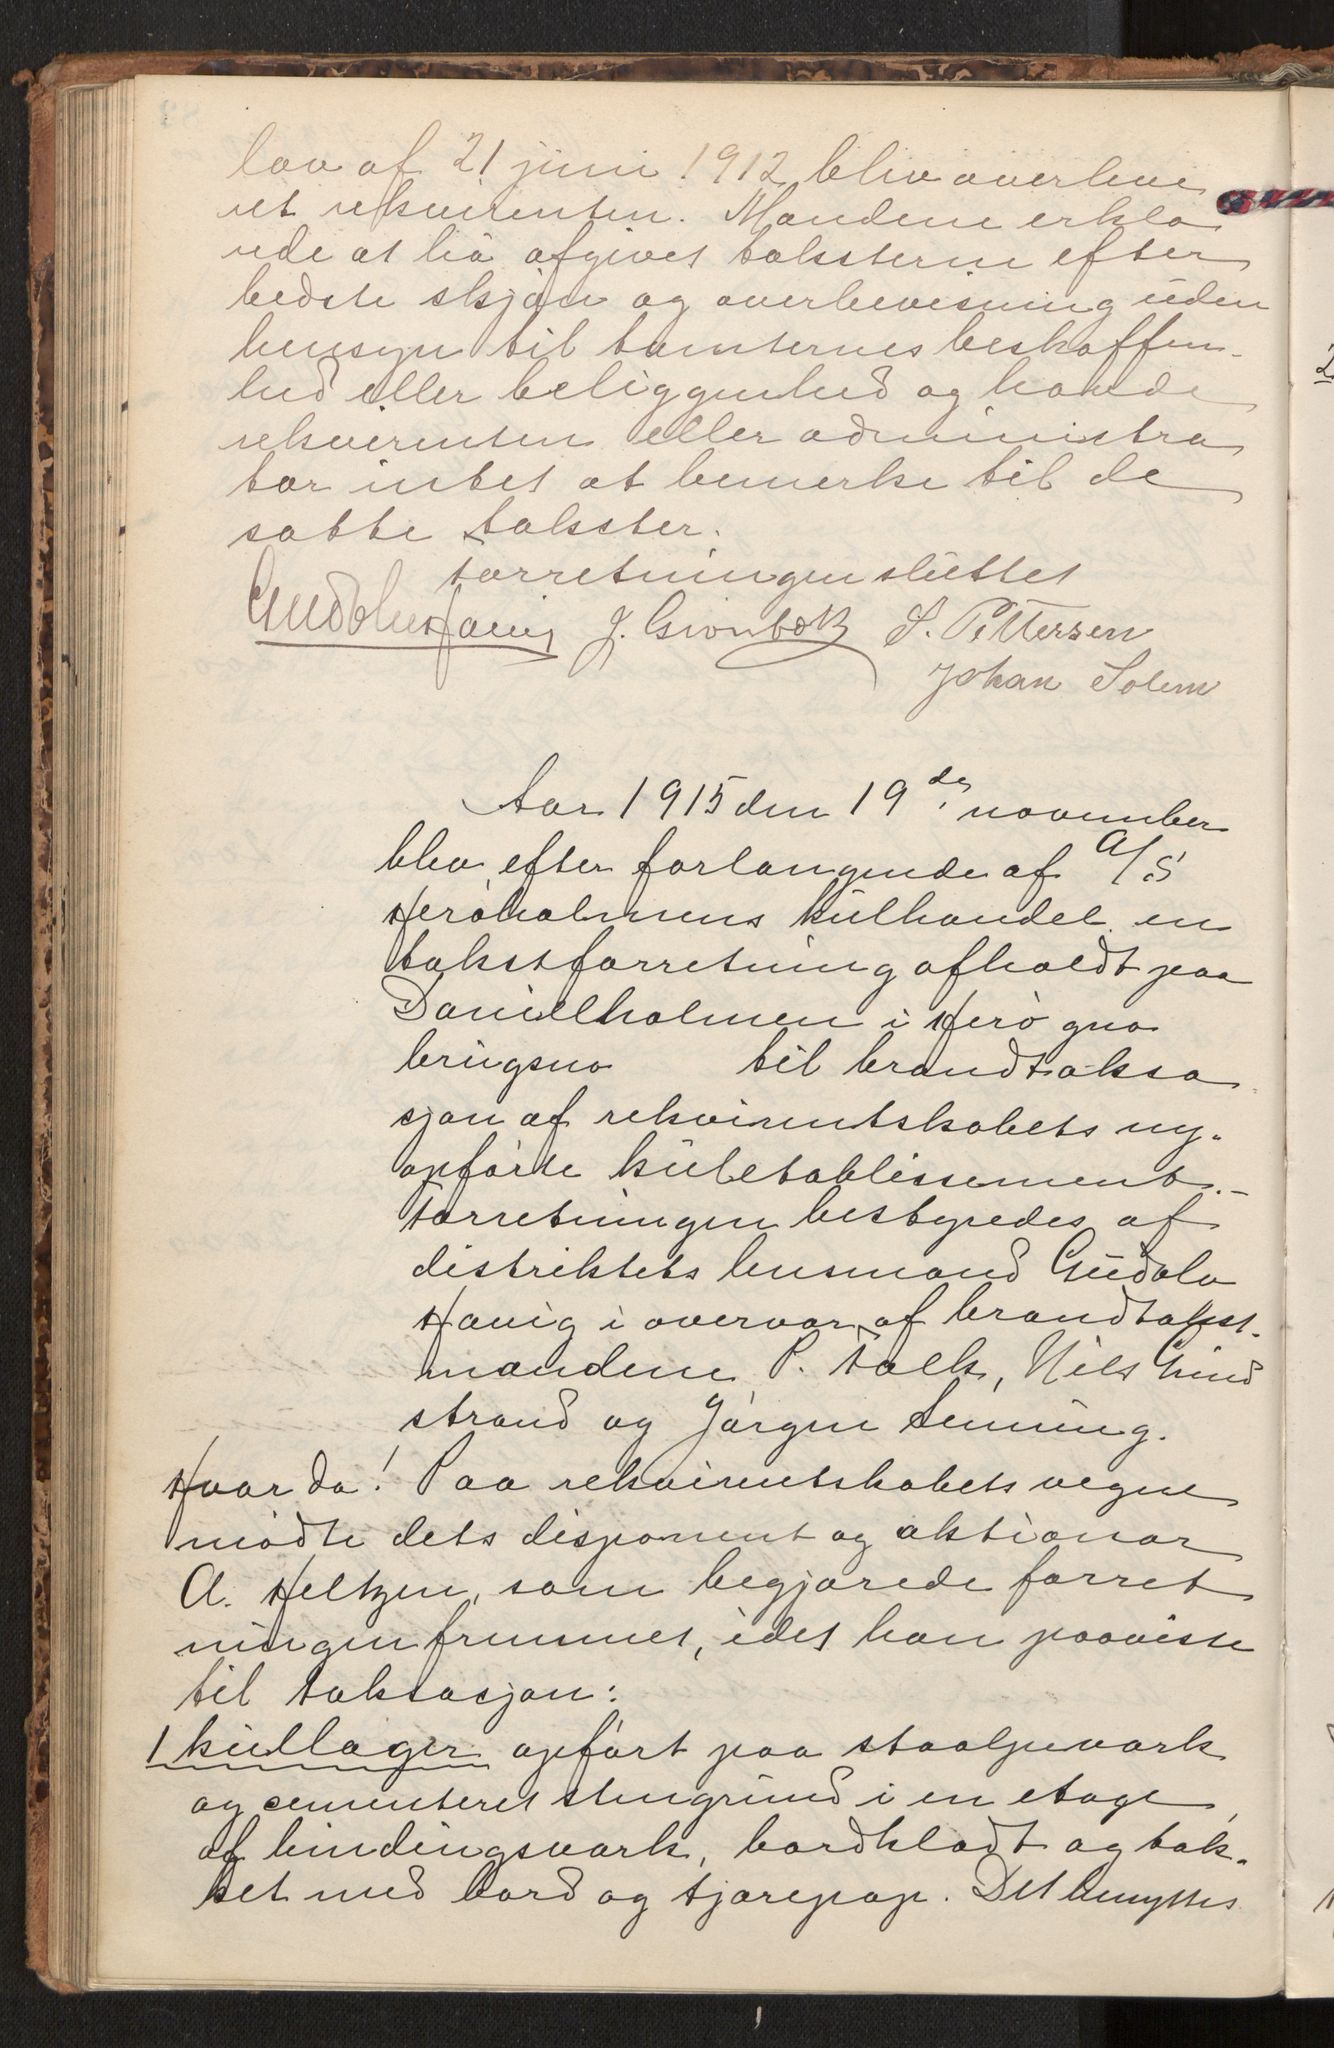 lov af 21 juni 1912 blev overleve
ret rekvirenten. Mændene erklæ
rede at ha afgivet taksterne efter
bedste skjøn og overbevisning uden
hensyn til tomternes beskaffen-
hed eller beliggenhed og havde
rekvirenten eller administra
tor intet at bemerke til de
satte takster.
Forretningen sluttet
Gudolv Havig J. Grønbæk S. Pettersen
Johan Solem
Aar 1915 den 19de november
blev efter forlangende af A/S
Herøholmens kulhandel en
takstforretning afholdt paa
Danielholmen i Herø gno
brugsno til brandtaksa
sjon af rekvirentskabets ny-
opførte kuletablissement.-
Forretningen bestyredes af
distriktets lensmand Gudolv
Havig i overvær af brandtakst-
mændene P. Falk, Nils Lind
strand og Jørgen Lenning.
Hvorda! Paa rekvirentskabets vegne
mødte dets disponent og aktionær
A. Heltzen, som begjærede forret
ningen fremmet, idet han paaviste
til taksasjon:
1 kullager opført paa staalpeværk
og cementeret stengrund i en etage,
af bindingsværk, bordklædt og tæk-
ket med bord og tjærepap. Det benyttes